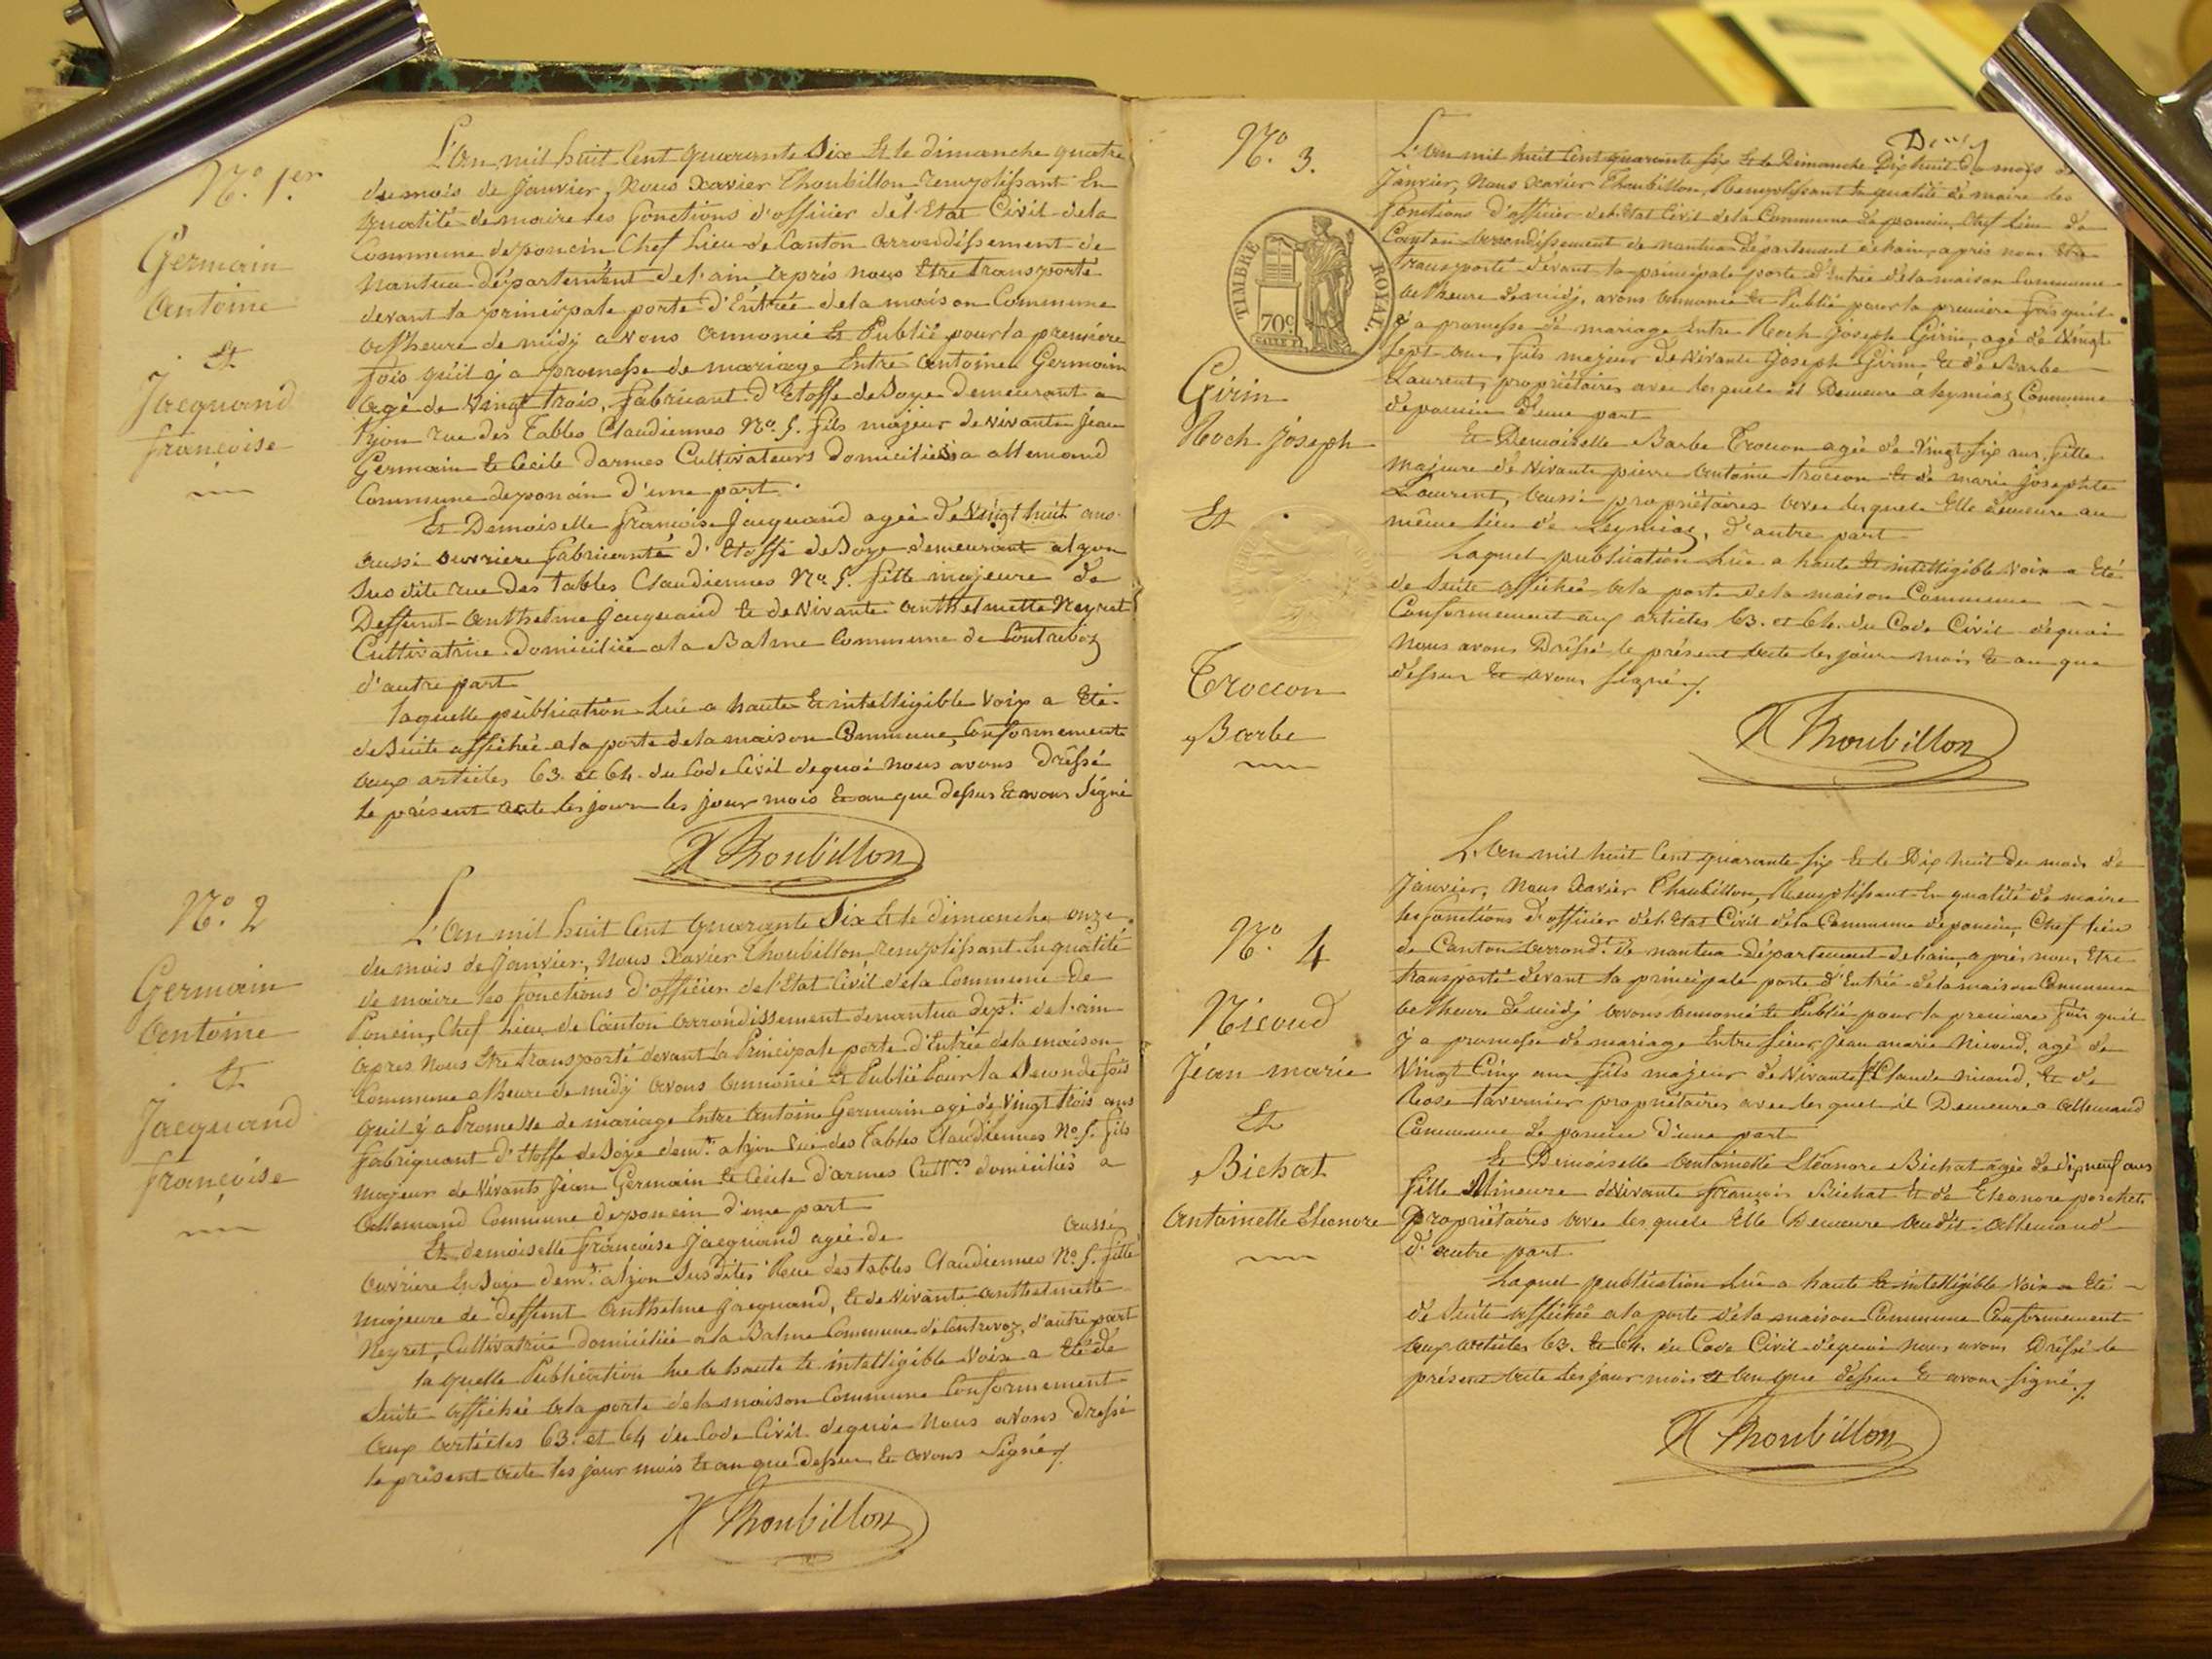 N.o 1.er
Germain
Antoine
Et
Jacquand
françoise
L'An mil huit Cent quarante Six Et le dimanche quatre
du mois de Janvier, Nous Xavier Thoubillon remplissant En
qualité de maire les fonctions d'officier de l'Etat Civil dela
Commune deponcin Chef Lieu de Canton arrondissement de
Nantua département del'ain, après nous Etre transporté
devant la principale porte d'Entrée dela maison Commune
a l'heure de midy avons annoncé Et Publié pour la première
fois qu'il y a promesse de mariage Entre Antoine Germain
agé de Vingt trois, fabricant d'Etoffe de Soye demeurant a
Lyon rue des Tables Claudiennes No. 5. fils majeur de vivants Jean
Germain Et Cécile darmes Cultivateurs domiciliés a allemand
Commune deponcin d'une part.
Et Demoiselle françoise Jacquand agée de Vingt huit ans
aussi ouvriere fabricante d'Etoffe de Soye demeurant a Lyon
Susdite rue des tables Claudiennes No. 5. fille majeure de
Deffunt Anthelme Jacquand Et de Vivante Anthelmette Neyret
Cultivatrice domiciliée a la Balme Commune de Contrevoz
d'autre part
laquelle publication Lue a haute Et intelligible Voix a Eté
de Suite affichée a la porte dela maison Commune, Conformement
aux articles 63. et 64. du Code Civil de quoi nous avons dressé
le présent acte les jour les jour mois Et an que dessus Et avons Signé
X Thoubillon
N.o 2
Germain
Antoine
Et
Jacquand
françoise
L'An mil huit Cent quarante Six Et le dimanche onze
du mois de Janvier, Nous Xavier Thoubillon remplissant En qualité
de maire les fonctions d'officier de l'Etat Civil dela Commune de
Poncin, Chef Lieu de Canton arrondissement denantua dept. del'ain
après Nous Etre transporté devant la Principale porte d'Entrée dela maison
Commune a l'heure de midy avons annoncé Et Publié Pour la Seconde fois
qu'il y a Promesse de mariage Entre Antoine Germain agé de Vingt trois ans
fabriquant d'Etoffe de Soye demt. a Lyon rue des Tables Claudiennes No. 5. fils
Majeur de Vivants Jean Germain Et Cécile d'armes Cultrs. domiciliés a
Allemand Commune deponcin d'une part
Et demoiselle françoise Jacquand agée de aussi
ouvriere En Soye demt. a Lyon Susdites Rue des tables Claudiennes No. 5. fille
majeure de deffunt Anthelme Jacquand, Et de Vivante Anthelmette
Neyret, Cultivatrice domiciliée a la Balme Commune de Contrevoz, d'autre part
la quelle Publication lue a haute Et intelligible Voix a Eté de
Suite affichée a la porte de la maison Commune Conformement
aux articles 63. et 64 du Code Civil de quoi Nous avons dressé
le présent acte les jour mois Et an que dessus Et avons Signé
X Thoubillon
N.o 3.
TIMBRE ROYAL.
70c
Girin
Roch Joseph
Et
Troccon
Barbe
L'An mil huit Cent quarante six Et le Dimanche Dix huit du mois de
Janvier, Nous Xavier Thoubillon, Remplissant En qualité de maire les
fonctions d'officier de l'Etat Civil dela Commune de poncin, Chef Lieu de
Canton arrondissement de nantua département de l'ain, après nous Etre
transporté devant la principale porte d'Entrée dela maison Commune
a l'heure de midy, avons annoncé Et Publié pour la première fois qu'il
y a promesse de mariage Entre Roch Joseph Girin, agé de Vingt
Sept ans, fils majeur de Vivants Joseph Girin Et de Barbe
Laurent, propriétaires avec lesquels il Demeure a Leymiaz Commune
deponcin d'une part
Et Demoiselle Barbe Troccon agée de Vingt six ans, fille
majeure de Vivants pierre Antoine troccon Et de marie Josephte
Laurent, aussi propriétaires avec lesquels Elle demeure au
même lieu de Leymiaz, d'autre part
Laquel publication Lue a haute Et intelligible Voix a Eté
de Suite affichée a la porte dela maison Commune
Conformement aux articles 63. et 64. du Code Civil dequoi
Nous avons Dréssé le présent acte les jour mois Et an que
dessus Et avons signé
X Thoubillon
N.o 4
Nicoud
Jean marie
Et
Bichat
Antoinette Eleonore
L'An mil huit Cent quarante six Et le Dix huit du mois de
Janvier, Nous Xavier Thoubillon, Remplissant En qualité de maire
les fonctions d'officier de l'Etat Civil dela Commune deponcin, Chef lieu
de Canton arrondt. de nantua département de l'ain, après nous Etre
transporté devant la principale porte d'Entrée dela maison Commune
a l'heure de midy avons annoncé Et Publié pour la première fois qu'il
y a promesse de mariage Entre sieur Jean marie Nicoud, agé de
Vingt Cinq ans fils majeur de Vivants Claude nicoud, Et de
Rose tavernier propriétaires avec lesquels il Demeure a Allemand
Commune de poncin d'une part
Et Demoiselle Antoinette Eléonore Bichat agée de dix neuf ans
fille Mineure de Vivants françois Bichat Et de Eleonore porchet
Propriétaires avec lesquels Elle Demeure audit Allemand
d'autre part
Laquel publication Lue a haute Et intelligible Voix a Eté
de Suite affichée a la porte dela maison Commune Conformement
aux articles 63. Et 64. du Code Civil dequoi nous avons Dréssé le
présent acte les jour mois et an que dessus Et avons signé
X Thoubillon